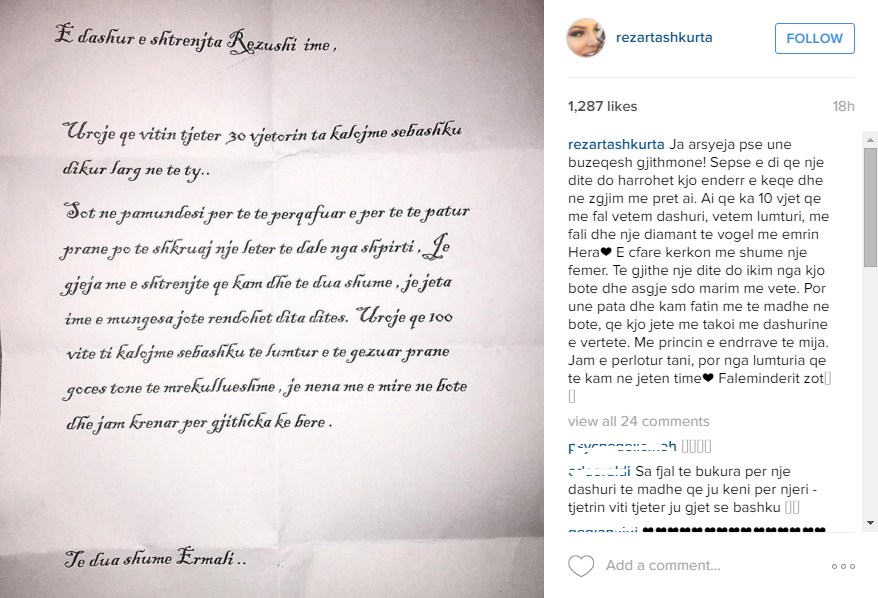 E dashur e shtrenjta Rezushi ime ,
Uroje qe vitin tjeter 30 vjetorin ta kalojme sebashku
dikur larg ne te ty..
Sot ne pamundesi per te te perqafuar e per te te patur
prane po te shkruaj nje leter te dale nga shpirti , Je
gjeja me e shtrenjte qe kam dhe te dua shume , je jeta
ime e mungesa jote rendohet dita dites. Uroje qe 100
vite ti kalojme sebashku te lumtur e te gezuar prane
goces tone te mrekullueshme , je nena me e mire ne bote
dhe jam krenar per gjithcka ke bere .
Te dua shume Ermali ..
rezartashkurta
FOLLOW
1,287 likes
18h
rezartashkurta Ja arsyeja pse une
buzeqesh gjithmone! Sepse e di qe nje
dite do harrohet kjo enderr e keqe dhe
ne zgjim me pret ai. Ai qe ka 10 vjet qe
me fal vetem dashuri, vetem lumturi, me
fali dhe nje diamant te vogel me emrin
Hera❤ E cfare kerkon me shume nje
femer. Te gjithe nje dite do ikim nga kjo
bote dhe asgje sdo marim me vete. Por
une pata dhe kam fatin me te madhe ne
bote, qe kjo jete me takoi me dashurine
e vertete. Me princin e endrrave te mija.
Jam e perlotur tani, por nga lumturia qe
te kam ne jeten time❤ Faleminderit zot
view all 24 comments
Sa fjal te bukura per nje
dashuri te madhe qe ju keni per njeri -
tjetrin viti tjeter ju gjet se bashku
❤❤❤❤❤❤❤❤❤❤❤❤❤❤❤
Add a comment...